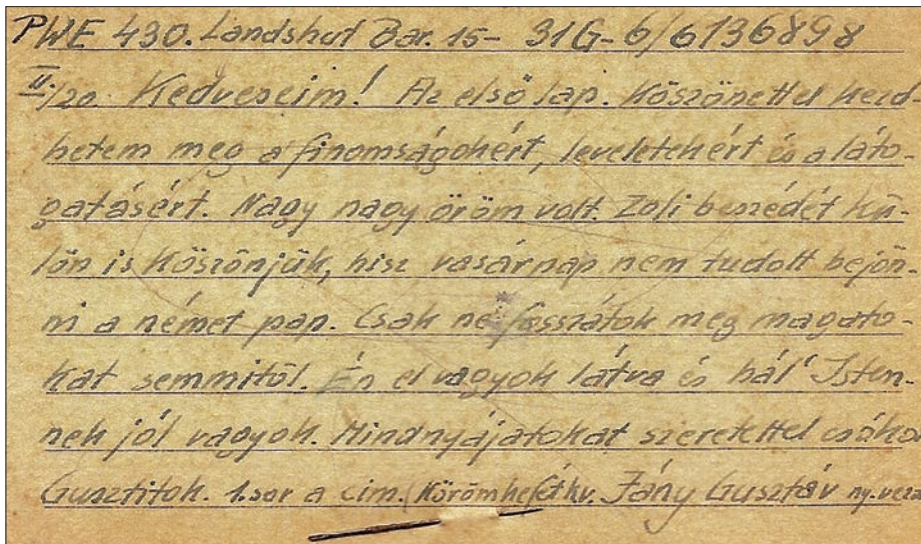 PWE 430. Landshut Bar. 15- 31G-6/6136898
II./20. Kedveseim! Az első lap. Köszönettel kezd-
hetem meg a finomságokért, leveletekért és a láto-
gatásért. Nagy nagy öröm volt. Zoli beszédét kü-
lön is köszönjük, hisz vasárnap nem tudott bejön-
ni a német pap. Csak ne fosszátok meg magato-
kat semmitől. Én el vagyok látva és hál' Isten-
nek jól vagyok. Mindnyájatokat szeretettel csóko
Gusztitok. 1. sor a cim. Jány Gusztáv ny. vezr